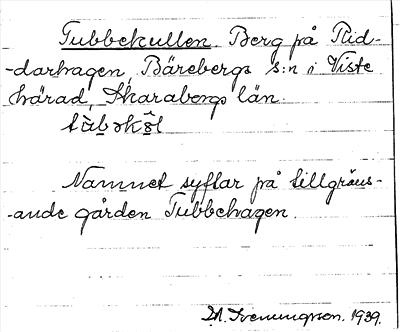 Tubbekullen. Berg på Rid-
-darhagen, Bärebergs s:n i Viste
härad, Skaraborgs län.
tùbəkŏ̭l
Namnet syftar på tillgräns-
-ande gården Tubbehagen.
D.A. Svenungsson. 1939.